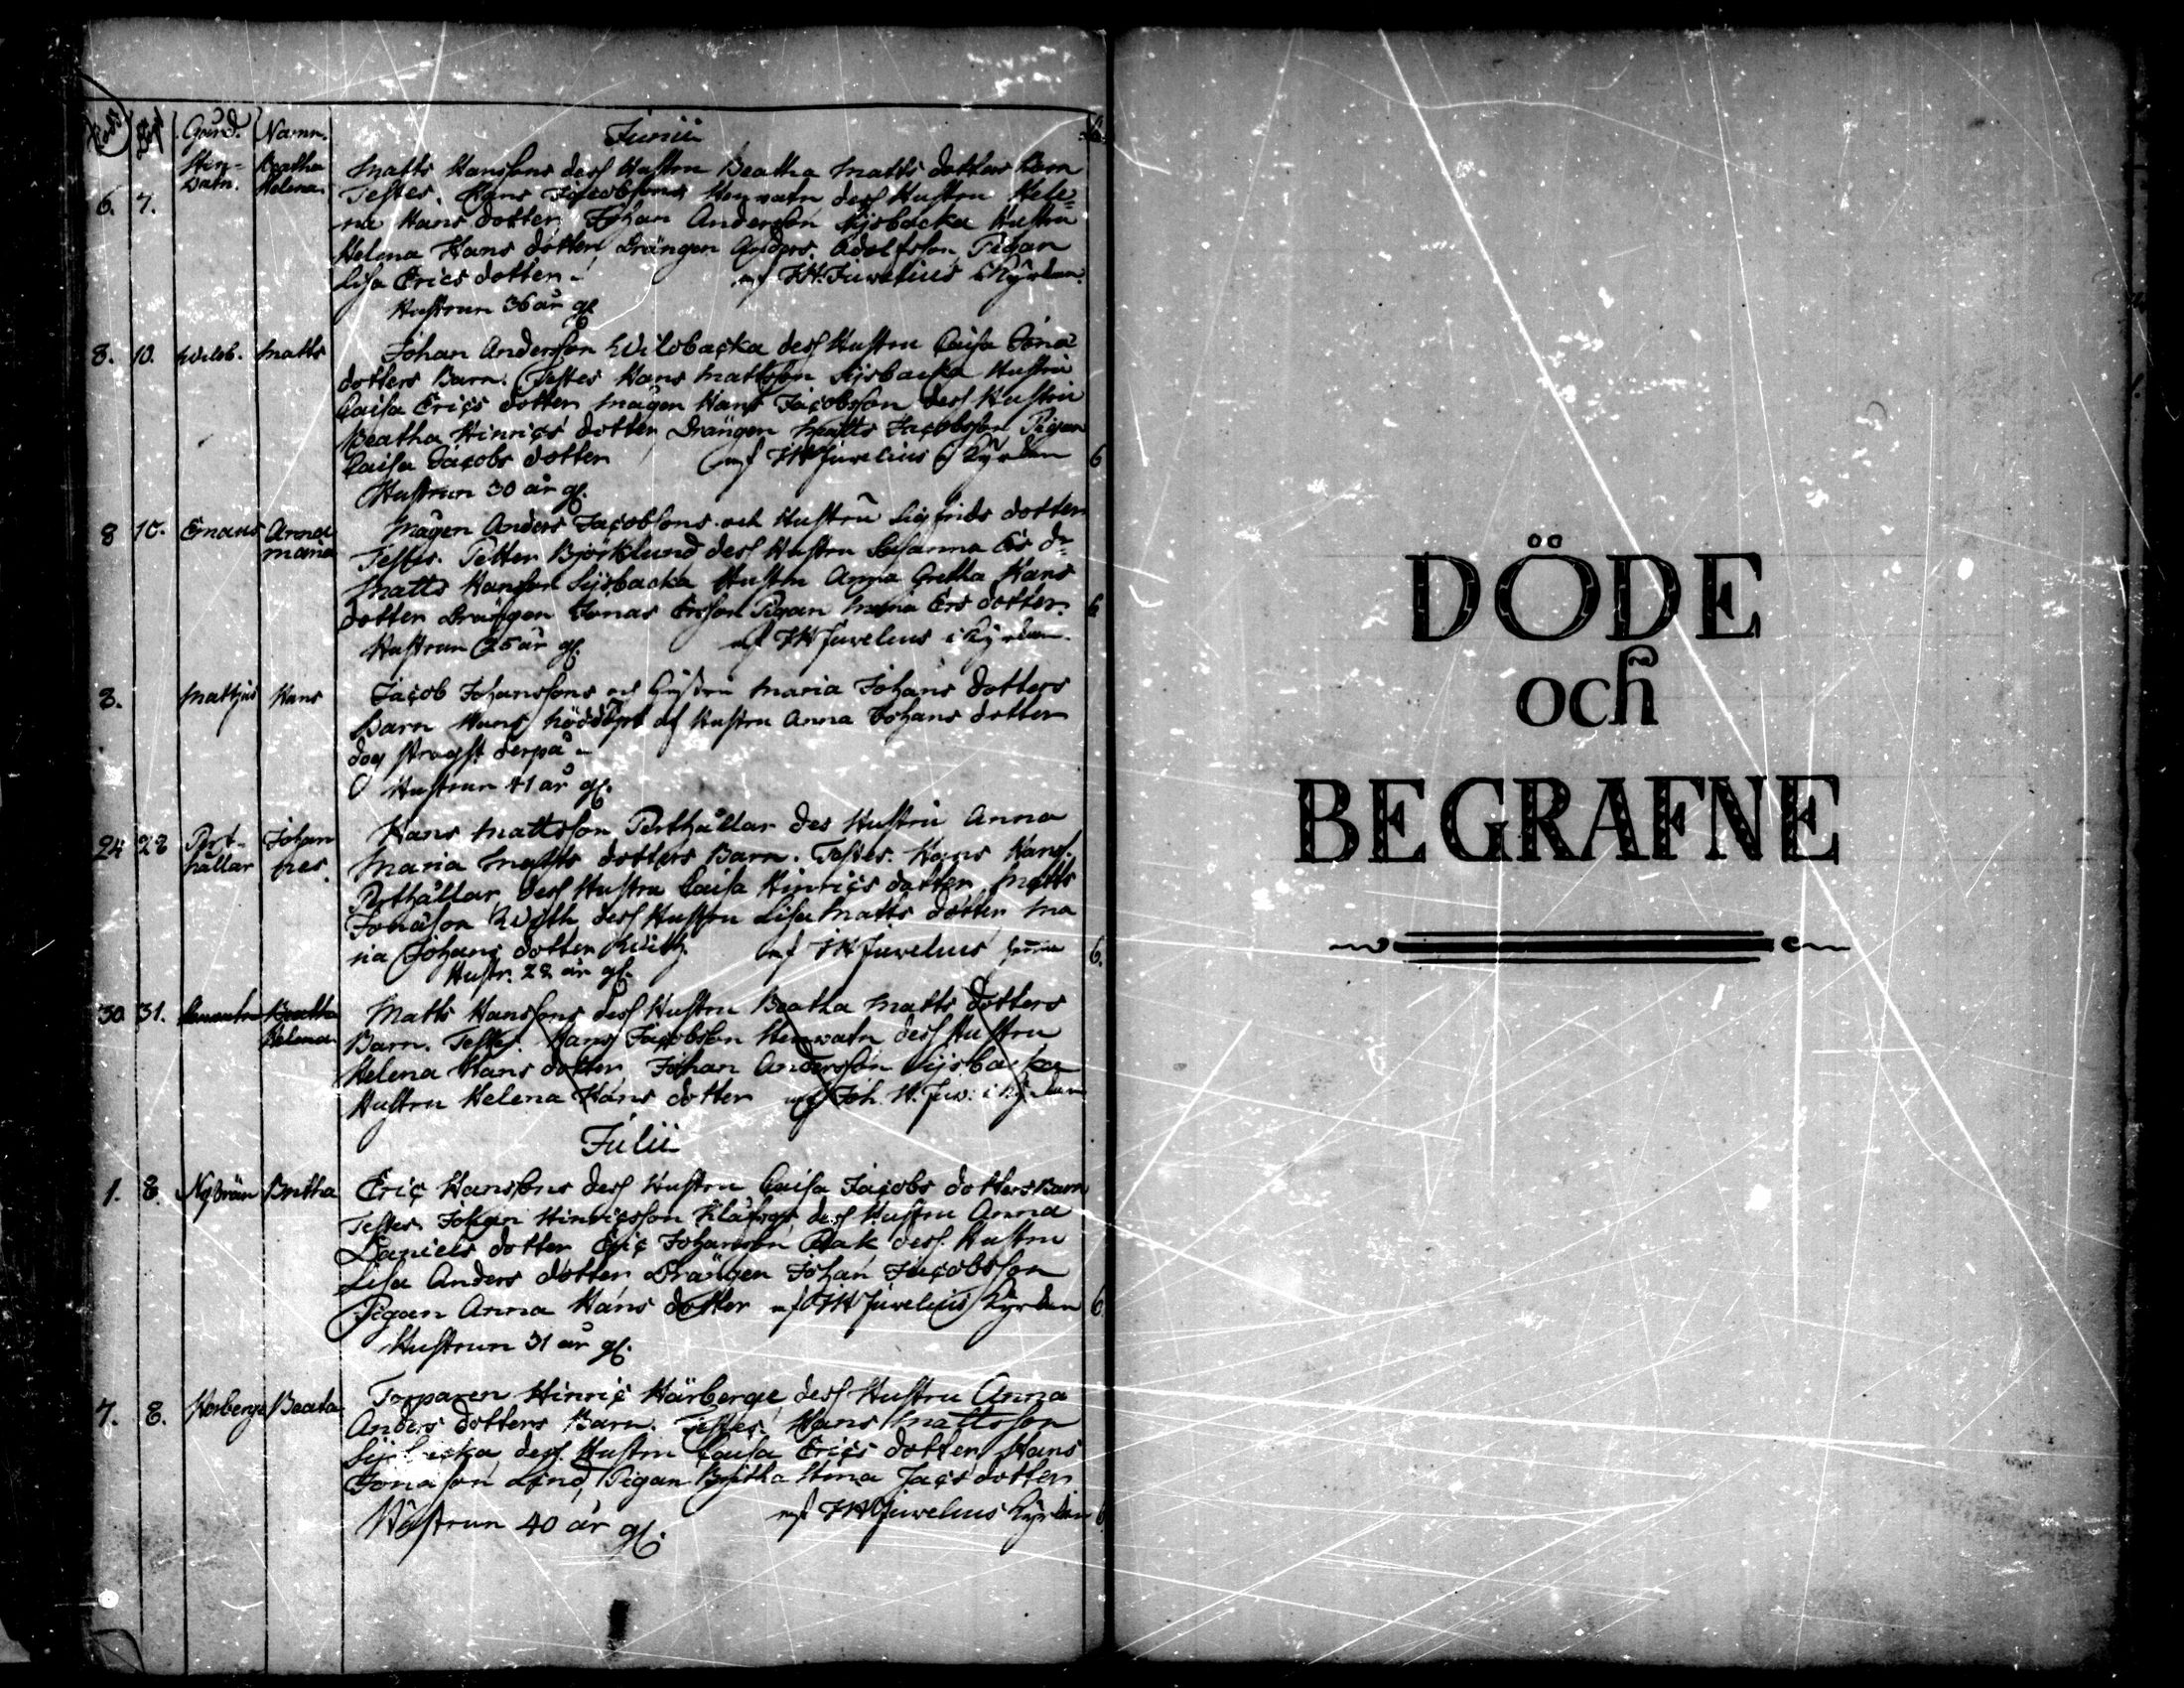 Gård. Namn.
Junii
Sten-
vatn. Beatha
Helena
6. 7.
Matts Hanssons dess Hustru Beatha Matts dotters barn
Testes. Hans Jacobssons Stenvatn dess Hustru Hele=
na Hans dotter, Johan Andersson Sijsbacka Hustru
Helena Hans dotter, Drängen Anders Adolfsson, Pigan
Lisa Erics dotter. af JH. Juvelius i Kyrkan.
Hustrun 36 år gl.
8. 10. Matts
Johan Andersson dess Hustru Caisa
dotters Barn. Testes Hans Mattsson Sijsbacka Hustru
Caisa Erics dotter Mågen Hans Jacobsson dess Hustru
Beatha Hinrics dotter, Drängen Matts Jacobsson Pigan
Caisa Jacobs dotter af JH Juvelius i Kyrkan 6
Hustrun 30 år gl.
8 10. Emaus Anna
Maria
Mågen Anders Jacobsons och Hustru Sigfrids dotter
Testes. Petter Björklund dess Hustru Susanna Ers dr
Matts Hansson Sijsbacka Hustru Anna Gretha Hans
dotter Drängen Jonas Ersson Pigan Maria Ers dotter. 6
Hustrun 25 år gl. af JH Juvelius i Kyrkan.
8. Mattjus Hans
Jacob Johanssons och Hustru Maria Johans dotters
Barn Hans nöddöpt af Hustru Anna Johans dotter
dog straxt derpå.
Hustrun 41 år gl.
24 28 Port-
hållar Johan
Hans Mattsson Porthållar des Hustru Anna
Maria Matts dotters Barn. Testes. Hans Hanss.
Porthållar, dess Hustru Caisa Hinrics dotter, Matts
Jonasson dess Hustru Lisa Matts dotter Ma
ria Johans dotter af JH Juvelius hemma 6.
Hustr. 22 år gl.
30 31. Stenvatn Beatha
Helena
Matts Hanssons dess Hustru Beatha Matts dotters
Barn. Testes. Hans Jacobsson Stenvatn dess Hustru
Helena Hans dotter, Johan Andersson Sijsbacka
Hustru Helena Hans dotter af Joh. H. Juv. i Kyrkan
Julii
1. 8. Britha
Eric Hanssons dess Hustru Caisa Jacobs dotters Barn
Testes Johan Hinricsson dess Hustru Anna
Daniels dotter Eric Johansson dess Hustru
Lisa Anders dotter Drängen Johan Jacobsson
Pigan Anna Hans dotter af JH Juvelius Kyrkan 6
Hustrun 31 år gl.
7. 8. Härberge Beata
Torparen Hinric Härberge dess Hustru Anna
Anders dotters Barn. Testes Hans Mattsson
Sijsbacka, dess Hustru Caisa Erics dotter, Hans
Jonasson Lind, Pigan Britha Stina Jacs dotter
af JH Juvelius Kyrkan 6
Hustrun 40 år gl.
DÖDE
och
BEGRAFNE